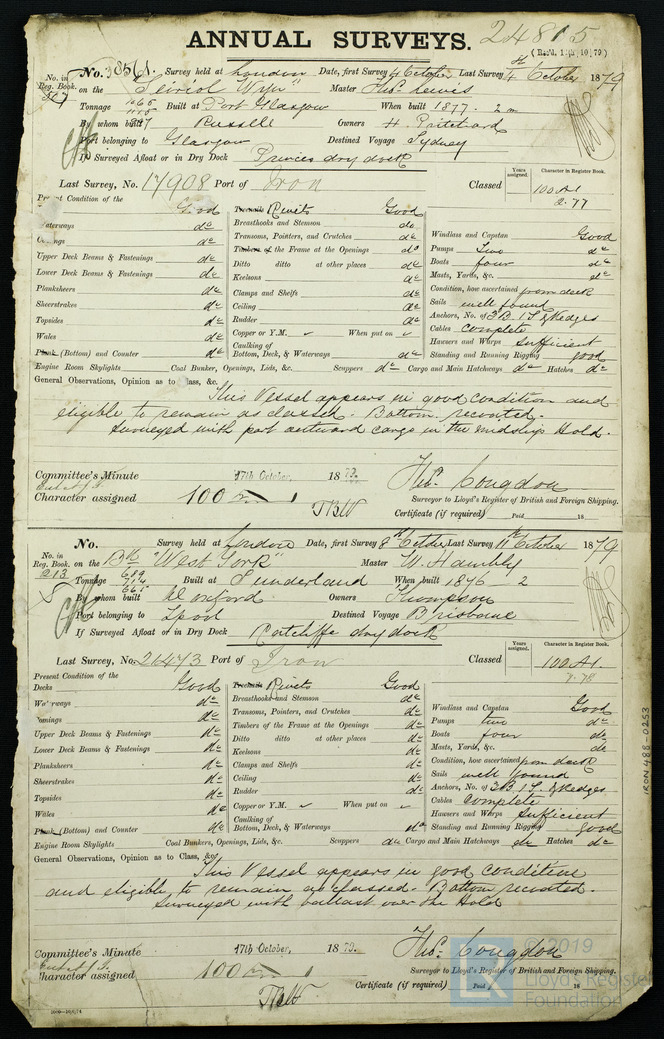 ANNUAL SURVEYS. 24815
No. 38561. Survey held at London Date, first Survey 4 October Last Survey 4th October 1879
No. in Reg. Book. 567 on the "Seiriol Wyn" Master Thos. Lewis
Tonnage Built at Port Glasgow When built 1877. 2 m
By whom built Russell Owners H. Pritchard
Port belonging to Glasgow Destined Voyage Sydney
If Surveyed Afloat or in Dry Dock Princes dry dock
Years assigned. Character in Register Book.
Last Survey, No. 17908 Port of Iron Classed 100 A1
2.77
Present Condition of the Good Rivets Good
Waterways do Breasthooks and Stemson do Windlass and Capstan Good
Comings do Transoms, Pointers, and Crutches do Pumps Two do
Upper Deck Beams & Fastenings do Timbers of the Frame at the Openings do Boats four do
Lower Deck Beams & Fastenings do Ditto ditto at other places do Masts, Yards, &c. do
Planksheers do Keelsons do Condition, how ascertained from deck
Sheerstrakes do Clamps and Shelfs do Sails well found
Topsides do Ceiling do Anchors, No. of 3 B. 1 S. 2 Kedges
Wales do Rudder do Cables complete
Plank (Bottom) and Counter do Copper or Y.M. ✓ When put on ✓ Hawsers and Warps sufficient
Caulking of Bottom, Deck, & Waterways do Standing and Running Rigging good
Engine Room Skylights Coal Bunker, Openings, Lids, &c. Scuppers do Cargo and Main Hatchways do Hatches do
General Observations, Opinion as to Class, &c.
This Vessel appears in good condition and
eligible to remain as classed. Bottom recoated.
Surveyed with part outward cargo in the midship Hold.
Committee's Minute 17th October, 1879.
Character assigned 100 A 1
Thos. Congdon
Surveyor to Lloyd's Register of British and Foreign Shipping.
Certificate (if required) Paid 18
No. Survey held at London Date, first Survey 8th October Last Survey 11th October 1879
No. in Reg. Book. 213 on the Bk "West York" Master W. Hambly
Tonnage 689 714 665 Built at Sunderland When built 1876 - 2
By whom built Doxford Owners Thompson
Port belonging to Lpool Destined Voyage Brisbane
If Surveyed Afloat or in Dry Dock Ratcliffe dry dock
Years assigned. Character in Register Book.
Last Survey, No. 26473 Port of Iron Classed 100 A1.
Present Condition of the
Decks Good Rivets Good
Waterways do Breasthooks and Stemson do Windlass and Capstan Good
Comings do Transoms, Pointers, and Crutches do Pumps two do
Upper Deck Beams & Fastenings do Timbers of the Frame at the Openings do Boats four do
Lower Deck Beams & Fastenings do Ditto ditto at other places do Masts, Yards, &c. do
Planksheers do Keelsons do Condition, how ascertained from deck
Sheerstrakes do Clamps and Shelfs do Sails well found
Topsides do Ceiling do Anchors, No. of 3 B 1 S. 2 Kedges
Wales do Rudder do Cables complete
Plank (Bottom) and Counter do Copper or Y.M. ✓ When put on ✓ Hawsers and Warps sufficient
Caulking of Bottom, Deck, & Waterways do Standing and Running Rigging good
Engine Room Skylights Coal Bunkers, Openings, Lids, &c. Scuppers do Cargo and Main Hatchways do Hatches do
General Observations, Opinion as to Class, &c.
This Vessel appears in good condition
and eligible to remain as classed. Bottom recoated.
Surveyed with ballast over the Hold
Committee's Minute 17th October, 1879.
Character assigned 100 A 1
Thos. Congdon
Surveyor to Lloyd's Register of British and Foreign Shipping.
Certificate (if required) Paid 18
IRON 488-0253
© 2019
Lloyd's Register
Foundation